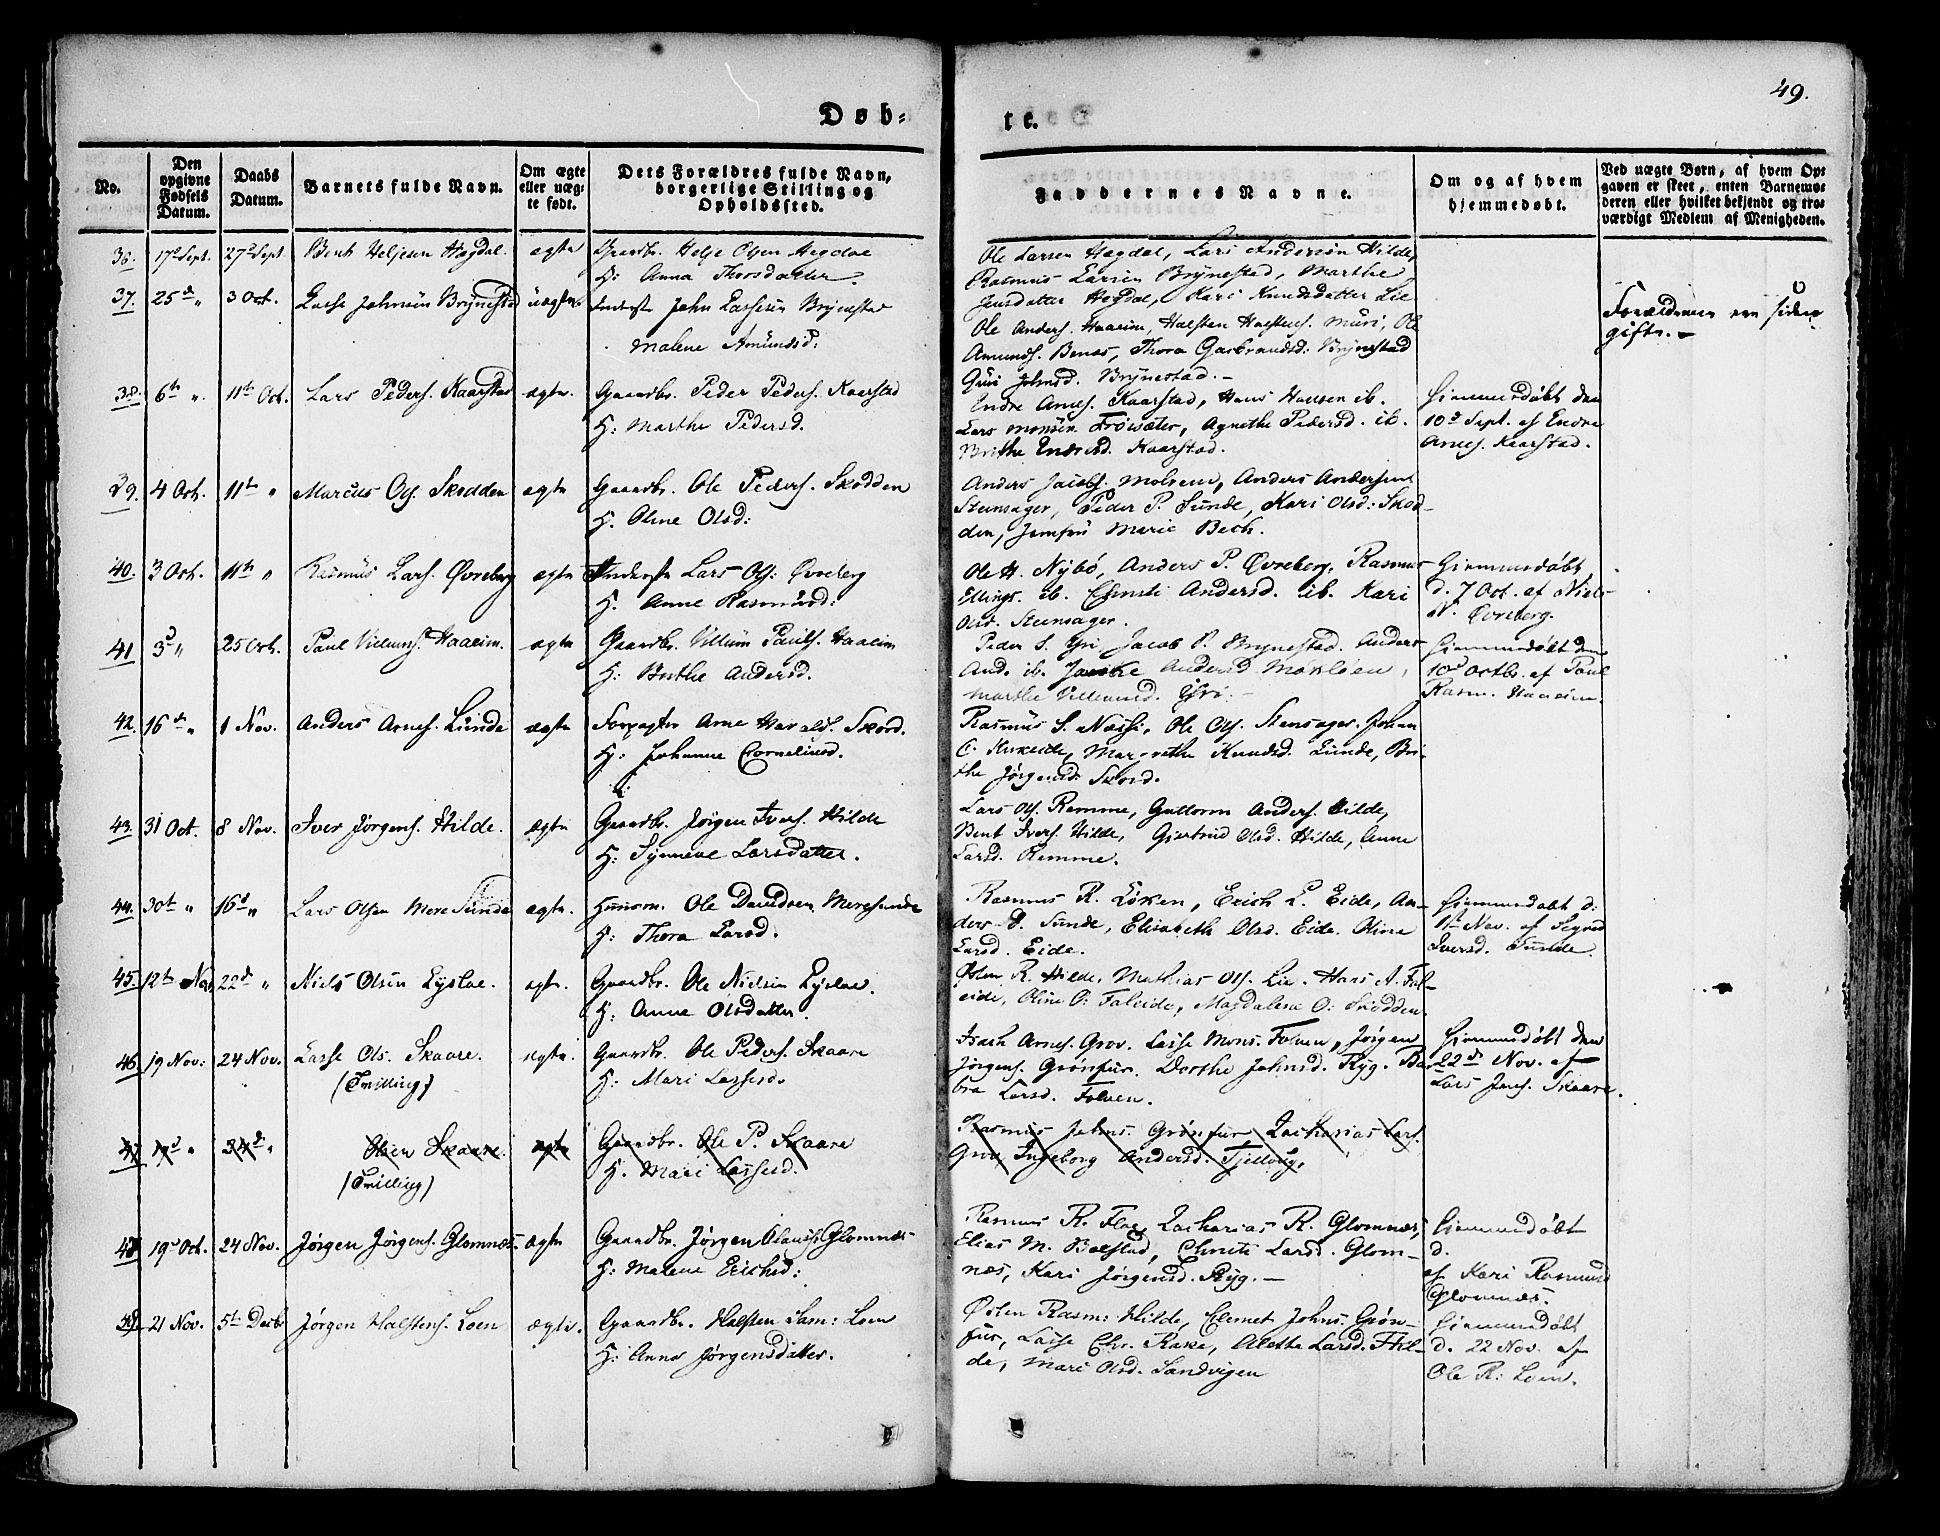 49.
Døb=
te.
No.
Den opgivne Fødsels Datum.
Daabs Datum.
Barnets fulde Navn.
Om ægte eller uægte født.
Dets Forældres fulde Navn, borgerlige Stilling og Opholdssted.
Faddernes Navne.
Om og af hvem hjemmedøbt.
Ved uægte Børn, af hvem Opgaven er skeet, enten Barnemoderen eller hvilket bekjendt og troværdigt Medlem af Menigheden.
36. 17d Sept. 27d Sept. Bent Heljesen Hægdal. ægte Gaardbr. Helje Olsen Hegdal
H: Anna Thorsdatter.
Ole Larsen Hegdal, Lars Andersøn Hilde,
Rasmus Larsen Brynestad, Marthe
Jensdatter Hegdal, Kari Knudsdatter Lie
37. 25d " 3 Oct. Lasse Johnsen Brynestad uægte Inderste John Lassesen Brynestad
Malene Amundsd:
Ole Anders. Haaeim, Halsten Halstens. Muri, Ole
Amunds. Benæs, Thora Gulbrandsd: Brynestad
Guri Johnsd. Brynestad.-
Forældrene ere siden
gifte.-
38. 6te ". 11te Oct. Lars Peders. Kaarstad ægte. Gaardbr. Peder Peders. Kaarstad
H: Marthe Pedersd.
Endre Arnes. Kaarstad, Hans Hansen ib.
Lars Monsen Frøisæter, Agnethe Pedersd. ib.
Brithe Endresd. Kaarstad.
Hiemmedøbt den
10d Sept. af Endre
Arnes. Kaarstad.
39. 4 Oct. 11te " Marcus Ols. Skodden ægte Gaardbr. Ole Peders. Skodden
H. Oline Olsd:
Anders Jacobs. Molvem, Anders Andersens
Stensager, Peder P. Sunde, Kari Olsd: Skod-
den, Jomfru Marie Bech.
40. 3 Oct. 11te " Rasmus Lars. Øvreberg ægte Inderste Lars Ols: Øvreberg
H. Anne Rasmusd:
Ole H. Nybø, Anders P. Øvreberg, Rasmus
Ellings. ib. Christi Andersd. ib. Kari
Olsd. Steensager.
Hiemmedøbt
d. 7 Oct. af Niels
N. Øvreberg.
41 3d " 25 Oct. Paul Villums. Haaeim. ægte Gaardbr. Villum Pauls. Haaeim
H: Brithe Andersd.
Peder S. Yri, Jacob P. Brynestad. Anders
And. ib. Andersd Mækløen,
Marthe Villumsd. Yri.-
Hiemmedøbt den
10d Octbr. af Paul
Rasm. Haaeim.
42. 16d " 1 Nov. Anders Arnes. Lunde ægte Forpagter Arne Haralds. Skord.
H: Johanne Corneliusd.
Rasmus S. Nosse, Ole Ols. Stensager. Johan
C. Kirkeide, Margrethe Knudsd. Lunde, Bri-
the Jørgensd. Skord.
43. 31 Oct. 8 Nov. Iver Jørgens. Hilde. ægte Gaardbr. Jørgen Ivers. Hilde
H: Synneve Larsdatter.
Lars Ols. Remme, Guttorm Anders. Hilde,
Bent Ivers. Hilde, Giertrud Olsd. Hilde, Anne
Larsd. Remme.
44. 30te " 16d " Lars Olsen Mere Sunde ægte. Huusm. Ole Davidsen Meresunde
H: Thora Larsd.
Rasmus R. Løken, Erich L. Eide, An-
ders D. Sunde, Elisabeth Olsd. Eide. Oline
Larsd. Eide.
Hiemmedøbt d:
1te Nov. af Sigrid
Iversd. Sunde.
45. 12te Nov 22d " Niels Olsen Lyslae. ægte. Gaardbr. Ole Nielsen Lyslae.
H: Anne Olsdatter.
Østen R. Hilde, Mathias Ols. Lie. Hans A. Fal-
eide, Oline O: Faleide, Magdalena O: Skodden.
46. 19 Nov: 24 Nov. Lasse Ols. Skaare. ægte. Gaardbr. Ole Peders. Skaare
(Tvilling) H: Mari Lassesd.
Isach Arnes. Grov. Lasse Mons. Folven, Jørgen
Jørgens. Grønfur. Dorthe Johnsd. Ryg. Bar-
bra Larsd. Folven.
Hiemmedøbt den
22d Nov. af
Lars Jens. Skaare.
47 19d " 24d " Olsen Skaare. ægte Gaardbr. Ole P. Skaare
(Tvilling) H. Mari Lassesd.
Rasmus Johns. Grønfur Zacharias Lars.
Grov Ingeborg Andersd. Tjellaug.
48 19d Oct. 24 Nov. Jørgen Jørgens. Glomnæs. ægte Gaardbr. Jørgen Claus: Glomnæs-
H: Malene Erichsd:
Rasmus R. Floe, Zacharias R. Glomnæs,
Elias M. Bolstad, Christi Larsd. Glom-
næs, Kari Jørgensd. Ryg.-
Hiemmedøbt
d.
af Kari Rasmusd
Glomnæs.
49. 21 Nov. 5te Decbr Jørgen Halstens. Loen ægte. Gaardbr. Halsten Sam: Loen
H: Anna Jørgensdatter.
Østen Rasm: Hilde, Clemet Johns. Grøn-
fur, Lasse Chr. Rake, Alethe Larsd. Hil-
de, Mari Olsd. Sandvigen
Hiemmedøbt
d. 22 Nov. af
Ole R: Loen.